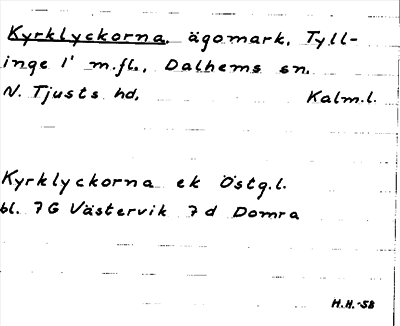 Kyrklyckorna, ägomark, Tyll-
inge 1' m.fl., Dalhems sn.
N. Tjusts hd, Kalm.l.
Kyrklyckorna ek Östg.l.
bl. 7G Västervik 7d Domra
H.H.-58